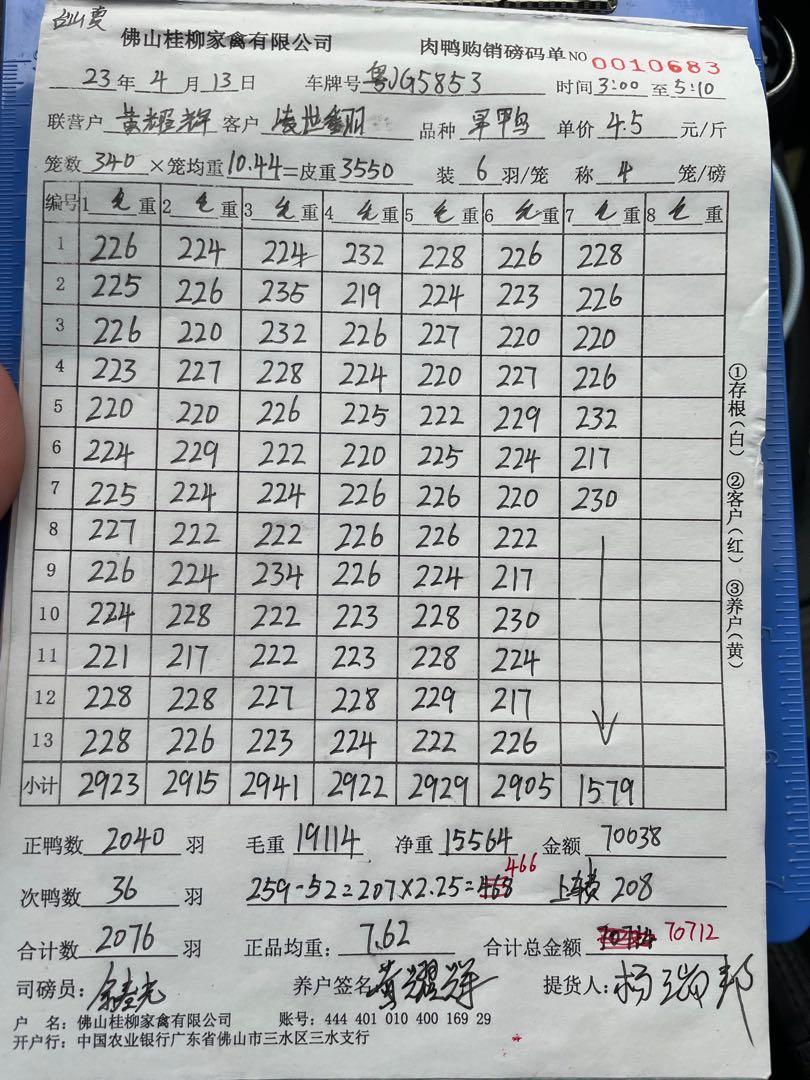 佛山桂柳家禽有限公司 肉鸭购销磅码单 NO 0010683
23年4月13日 车牌号 粤JG5853 时间 3:00 至 5:10
联营户 黄耀辉 客户 凌世 品种 单价 4.5 元/斤
笼数 340 ×笼均重 10.44 =皮重 3550 装 6 羽/笼 称 4 笼/磅
编号 1 毛 重 2 毛 重 3 毛 重 4 毛 重 5 毛 重 6 毛 重 7 毛 重 8 毛 重
1 226 224 224 232 228 226 228
2 225 226 235 219 224 223 226
3 226 220 232 226 227 220 220
4 223 227 228 224 220 227 226
5 220 220 226 225 222 229 232
6 224 229 222 220 225 224 217
7 225 224 224 226 226 220 230
8 227 222 222 226 226 222
9 226 224 234 226 224 217
10 224 228 222 223 228 230
11 221 217 222 223 228 224
12 228 228 227 228 229 217
13 228 226 223 224 222 226
小计 2923 2915 2941 2922 2929 2905 1579
①存根(白) ②客户(红) ③养户(黄)
正鸭数 2040 羽 毛重 19114 净重 15564 金额 70038
次鸭数 36 羽 259-52=207×2.25=468 466 上车费 208
合计数 2076 羽 正品均重: 7.62 合计总金额 70714 70712
司磅员: 养户签名 黄耀辉 提货人: 杨瑞邦
户 名: 佛山桂柳家禽有限公司 账号: 444 401 010 400 169 29
开户行: 中国农业银行广东省佛山市三水区三水支行